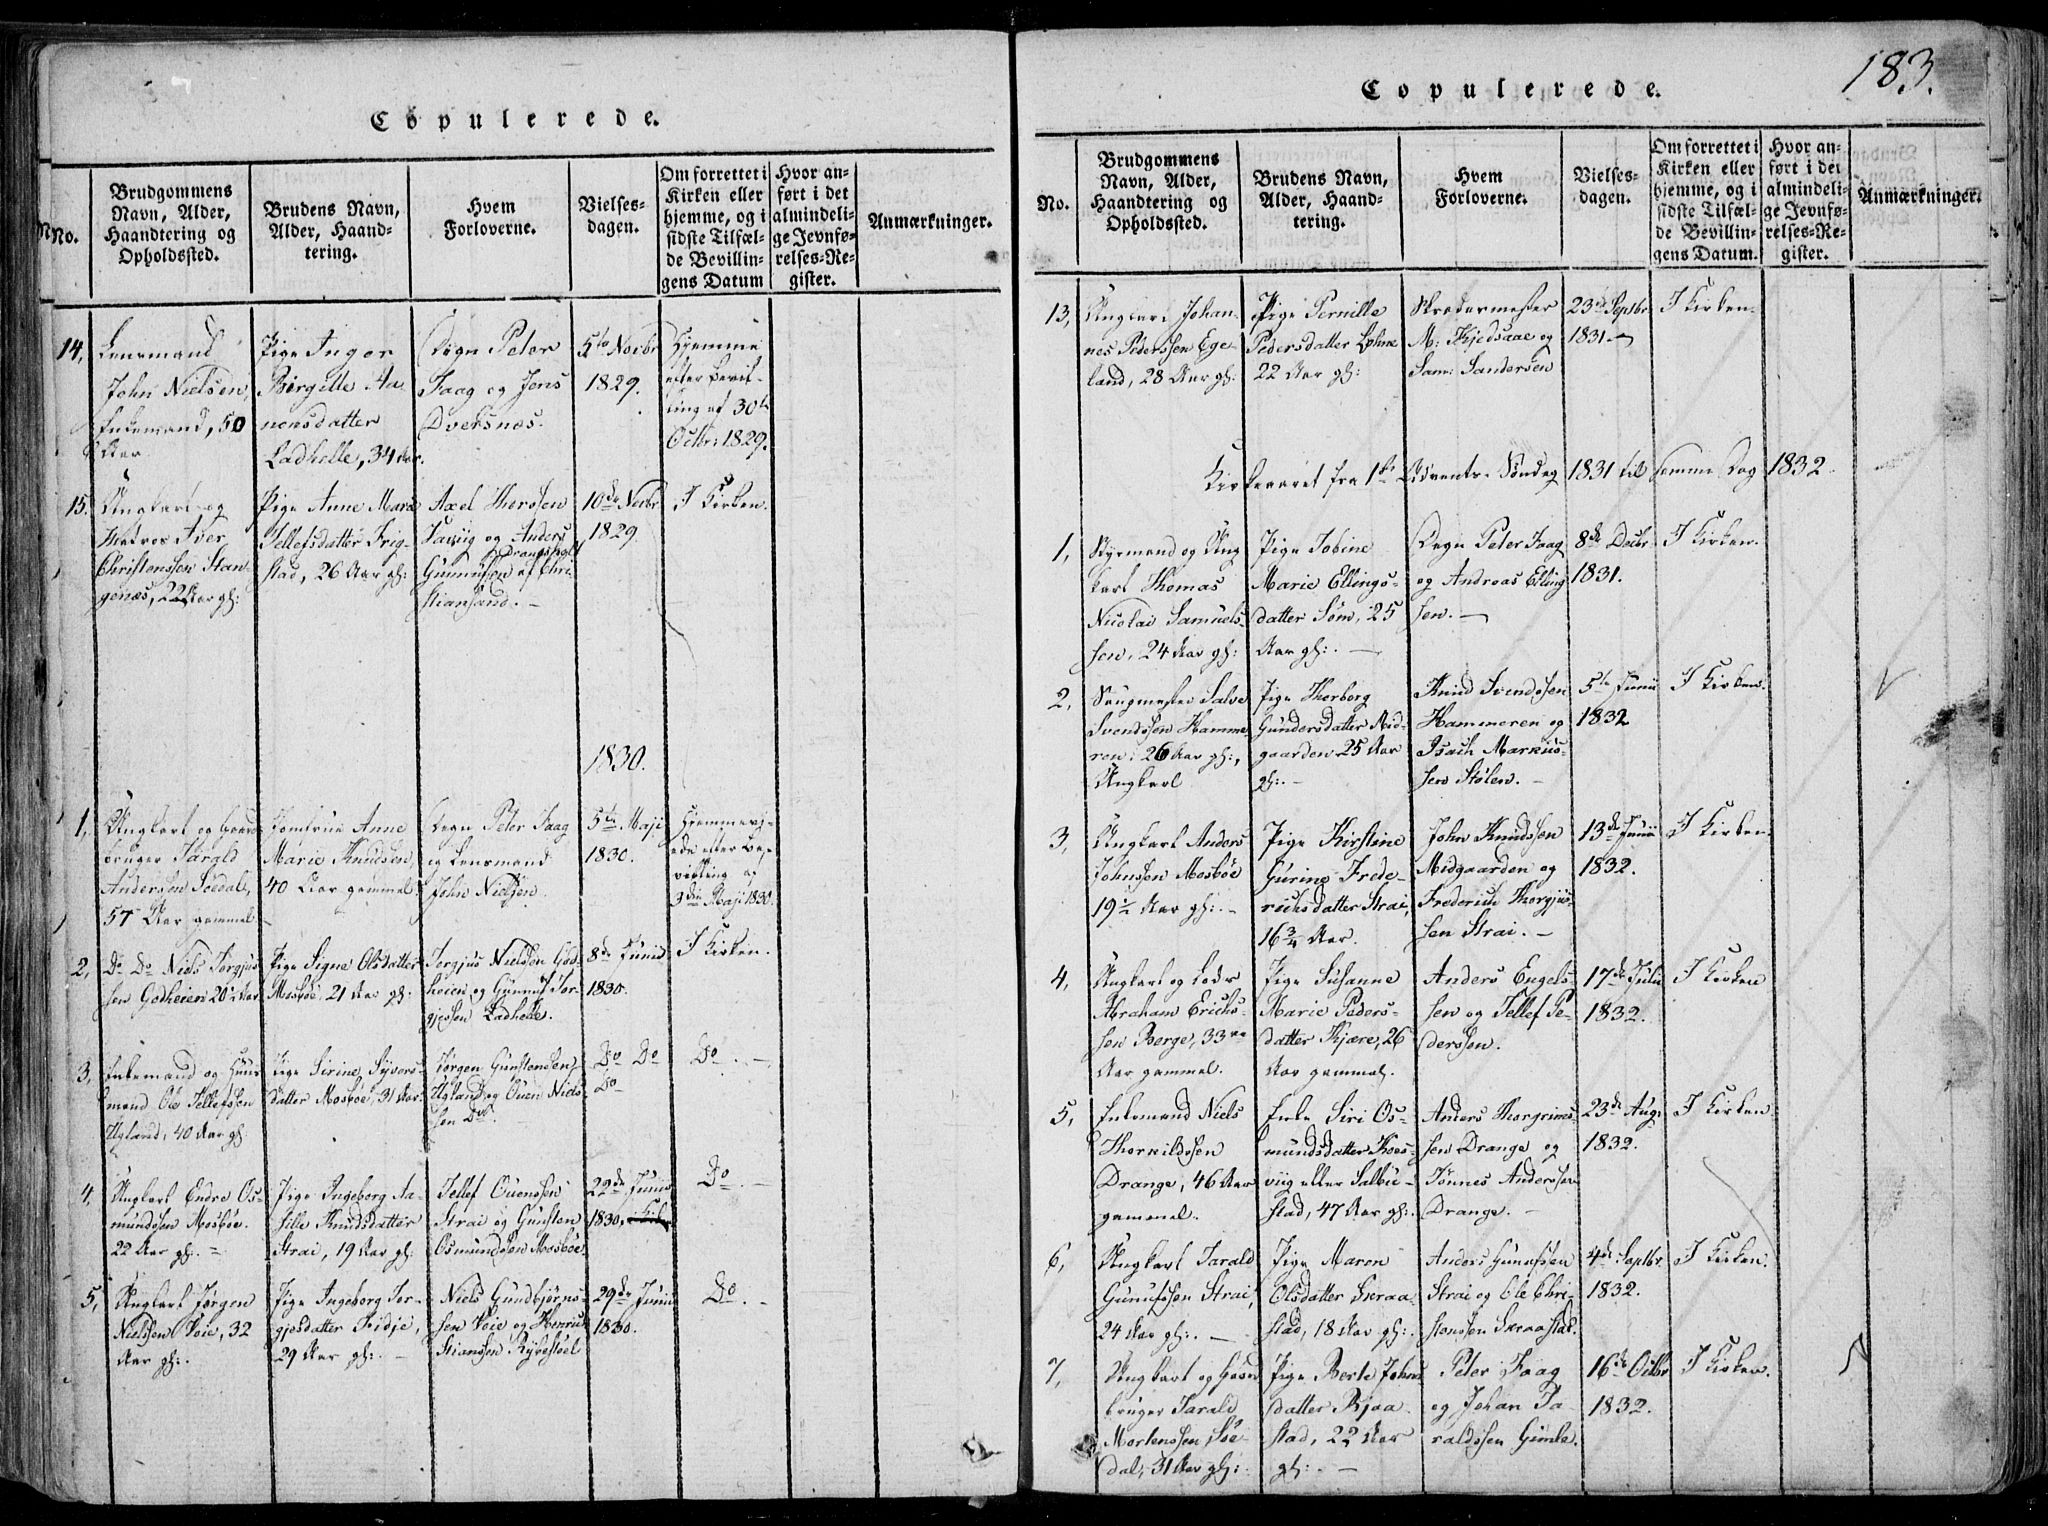 183.
Copulerede.
No.
Brudgommens
Navn, Alder,
Haandtering og
Opholdssted.
Brudens Navn,
Alder, Haand-
tering.
Hvem
Forloverne.
Vielses-
dagen.
Om forrettet i
Kirken eller
hjemme, og i
sidste Tilfæl-
de Bevillin-
gens Datum
Hvor an-
ført i det
almindeli-
ge Jevnfø-
relses-Re-
gister.
Anmærkninger.
14,
Lensmand
John Nielsen,
Enkemand, 50
Aar
Pige Inger
Birgitte Aa-
nensdatter
Ladhelle, 34 Aar.
Degn Peter
Faag og Jens
Dveksnes.
5te Novbr
1829.
Hjemme
efter Bevil-
ling af 30te
Octbr: 1829.
15.
Ungkarl og
Matros Iver
Christenssen Stan-
genæs, 22 Aar gl:
Pige Anne Maria
Tellefsdatter Frig-
stad, 26 Aar gl:
Axel Thorsen
og Anders
Gunnufsen af Chri-
stiansand. -
10de Novbr
1829
I Kirken.
1830.
1,
Ungkarl og Gaard-
bruger Tarald
Andersen Søedal,
57 Aar gammel
Jomfrue Anne
Marie Knudsen,
40 Aar gammel
Degn Peter Faag
og Lensmand
John Nielsen
5te Maji
1830.
efter Be-
villing af
3die Maji 1830.
2,
Do Do Niels Torgjus-
sen Godheien 20½ Aar
Pige Signe Olsdatter
Mosbøe, 21 Aar gl:
Torgjus Nielsen God-
heien og Gunnuf Tor-
gjessen Ladhelle.
8de Junii
1830.
I Kirken.
3,
Enkemand og Huus-
mand Ole Tellefssen
Ugland, 40 Aar gl
Pige Sirine Syvers-
datter Mosbøe, 31 Aar.
Jørgen Gunstensen
Ugland og Ouen Niels-
sen Do.
Do Do
Do
Do. -
4,
Ungkarl Endre Os-
mundsen Mosbøe.
22 Aar gl. -
Pige Ingeborg Aa-
sille Knudsdatter
Strai, 19 Aar gl.
Tellef Ouenssen
Strai og Gunsten
Osmundssen Mosbøe
22de Junii
1830.
Do. -
5,
Ungkarl Jørgen
Nielssen Voie, 32
Aar gl:.
Pige Ingeborg Tor-
gjesdatter Fidje,
29 Aar gl:. -
Niels Gundbjørns-
sen Voie og Henrik
Stianssen Rybestoel
29de Junii
1830.
Do. -
Copulerede.
No.
Brudgommens
Navn, Alder,
Haandtering og
Opholdssted.
Brudens Navn,
Alder, Haand-
tering.
Hvem
Forloverne.
Vielses-
dagen.
Om forrettet i
Kirken eller
hjemme, og i
sidste Tilfæl-
de Bevillin-
gens Datum.
Hvor an-
ført i det
almindeli-
ge Jevnfø-
relses-Re-
gister.
Anmærkninger.
13,
Ungkarl Johan-
nes Pederssen Ege-
land, 28 Aar gl:
Pige Pernille
Pedersdatter Lohne
22 Aar gl:
Skrædermester
M: Kjedsaae og
Sam: Sandersen
23de Septbr
1831
I Kirken.
Kirkeaaret fra 1ste Advents-Søndag 1831 til samme Dag 1832.
1,
Styrmand og Ung-
karl Thomas
Nicolai Samuels-
sen, 24 Aar gl:
Pige Tobine
Marie Ellings-
datter Søm, 25
Aar gl:. -
Degn Peter Faag
og Andreas Elling-
sen. -
8de Decbr
1831.
I Kirken.
2,
Salve
Svendssen Hamme-
ren, 26 Aar gl:,
Ungkarl
Pige Thorborg
Gundersdatter Mid-
gaarden 25 Aar
gl:. -
Knud Svendssen
Hammeren og
Isach Markus-
sen Stølen. -
5te Junii
1832
I Kirken.
3,
Ungkarl Anders
Johnssen Mosbøe
19½ Aar gl:. -
Pige Kirstine
Gurine Frede-
richsdatter Strai,
16¾ Aar.
John Knudssen
Midgaarden og
Frederich Thorgjus-
sen Strai. -
13de Junii
1832.
I Kirken.
4,
Ungkarl og Lods
Abraham Erichs-
sen Berge, 33
Aar gammel.
Pige Susanne
Marie Peders-
datter Kjære, 26
Aar gammel.
Anders Engels-
sen og Tellef Pe-
derssen.
17de Julii
1832.
I Kirken
5,
Enkemand Niels
Thorkildssen
Drange, 46 Aar
gammel.
Enke Siri Os-
mundsdatter Koes-
viig eller Salbu-
stad, 47 Aar gl:.
Anders Thorgrims-
sen Drange og
Tønnes Andersen
Drange. -
23de Aug:
1832.
I Kirken.
6,
Ungkarl Tarald
Gunufssen Strai,
24 Aar gl:. -
Pige Maren
Olsdatter Skraa-
stad, 18 Aar gl:.
Anders Gunufssen
Strai og Ole Chri-
stenssen Skraastad.
4de Septbr.
1832.
I Kirken.
7,
Ungkarl og Gaard-
bruger Tarald
Mortenssen Søe-
dal, 31 Aar gl:.
Pige Berte Johns-
datter Rjaa-
stad, 22 Aar
gl:. -
Peter Faag
og Johan Ta-
raldssen Gimle.
16de Octbr
1832.
I Kirken.